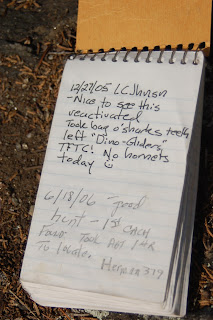 12/27/05 LCJhnsn
- Nice to see this
reactivated
Took bag o'sharks teeth
left "Dino-Gliders"
TFTC! No hornets
today ☺
6/18/06 Good
hunt - 1st CACH
FOUND TOOK
To Locate.